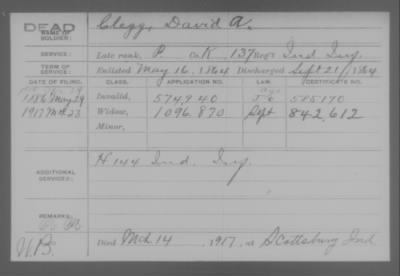 DEAD
NAME OF SOLDIER: Clegg, David A.
SERVICE: Late rank, P. Co. K, 137 Reg't Ind Inf.
TERM OF SERVICE: Enlisted May 16, 1864 Discharged Sept 21, 1864
DATE OF FILING. CLASS. APPLICATION NO. LAW. CERTIFICATE NO.
1886 May 29 Invalid, 574,940 585170
1917 Mch 23 Widow, 1096.870 Sept 842,612
Minor,
ADDITIONAL SERVICES: H 144 Ind. Inf.
REMARKS:
Died Mch 14, 1917, at Scottsburg Ind